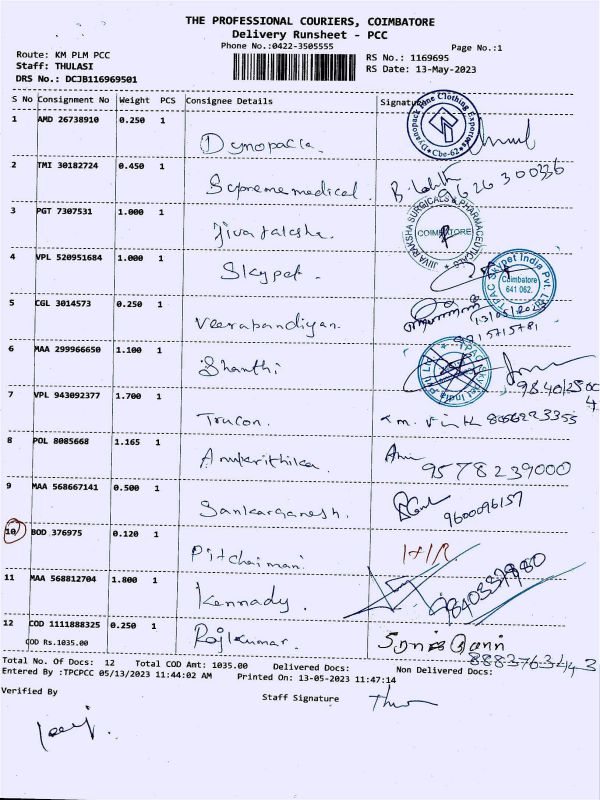 THE PROFESSIONAL COURIERS, COIMBATORE
Delivery Runsheet - PCC
Phone No.:0422-3505555
Page No.:1
Route: KM PLM PCC
Staff: THULASI
DRS No.: DCJB116969501
RS No.: 1169695
RS Date: 13-May-2023
S No Consignment No Weight PCS Consignee Details Signature
1 AMD 26738910 0.250 1
Dynopack.
2 TMI 30182724 0.450 1
Supreme medical. 9626300336
3 PGT 7307531 1.000 1
Jiva raksha.
JIIVA RAKSHA SURGICALS & PHARMACEUTICALS
COIMBATORE
4 VPL 520951684 1.000 1
Skypet.
TPAC Skypet India Pvt. Ltd
Coimbatore
641 062.
5 CGL 3014573 0.250 1
Veerapandiyan.
13/05/2023
9815715781
6 MAA 299966650 1.100 1
Shanthi
7 VPL 943092377 1.700 1
Trucon.
8 POL 8085668 1.165 1
Anukrithika.
9578239000
9 MAA 568667141 0.500 1
Sankarganesh.
9600096157
10 BOD 376975 0.120 1
Pitchaimani
11 MAA 568812704 1.800 1
Kennady.
12 COD 1111888325 0.250 1
Rajkumar.
COD Rs.1035.00
8883763443
Total No. Of Docs: 12 Total COD Amt: 1035.00 Delivered Docs: Non Delivered Docs:
Entered By :TPCPCC 05/13/2023 11:44:02 AM Printed On: 13-05-2023 11:47:14
Verified By
Staff Signature